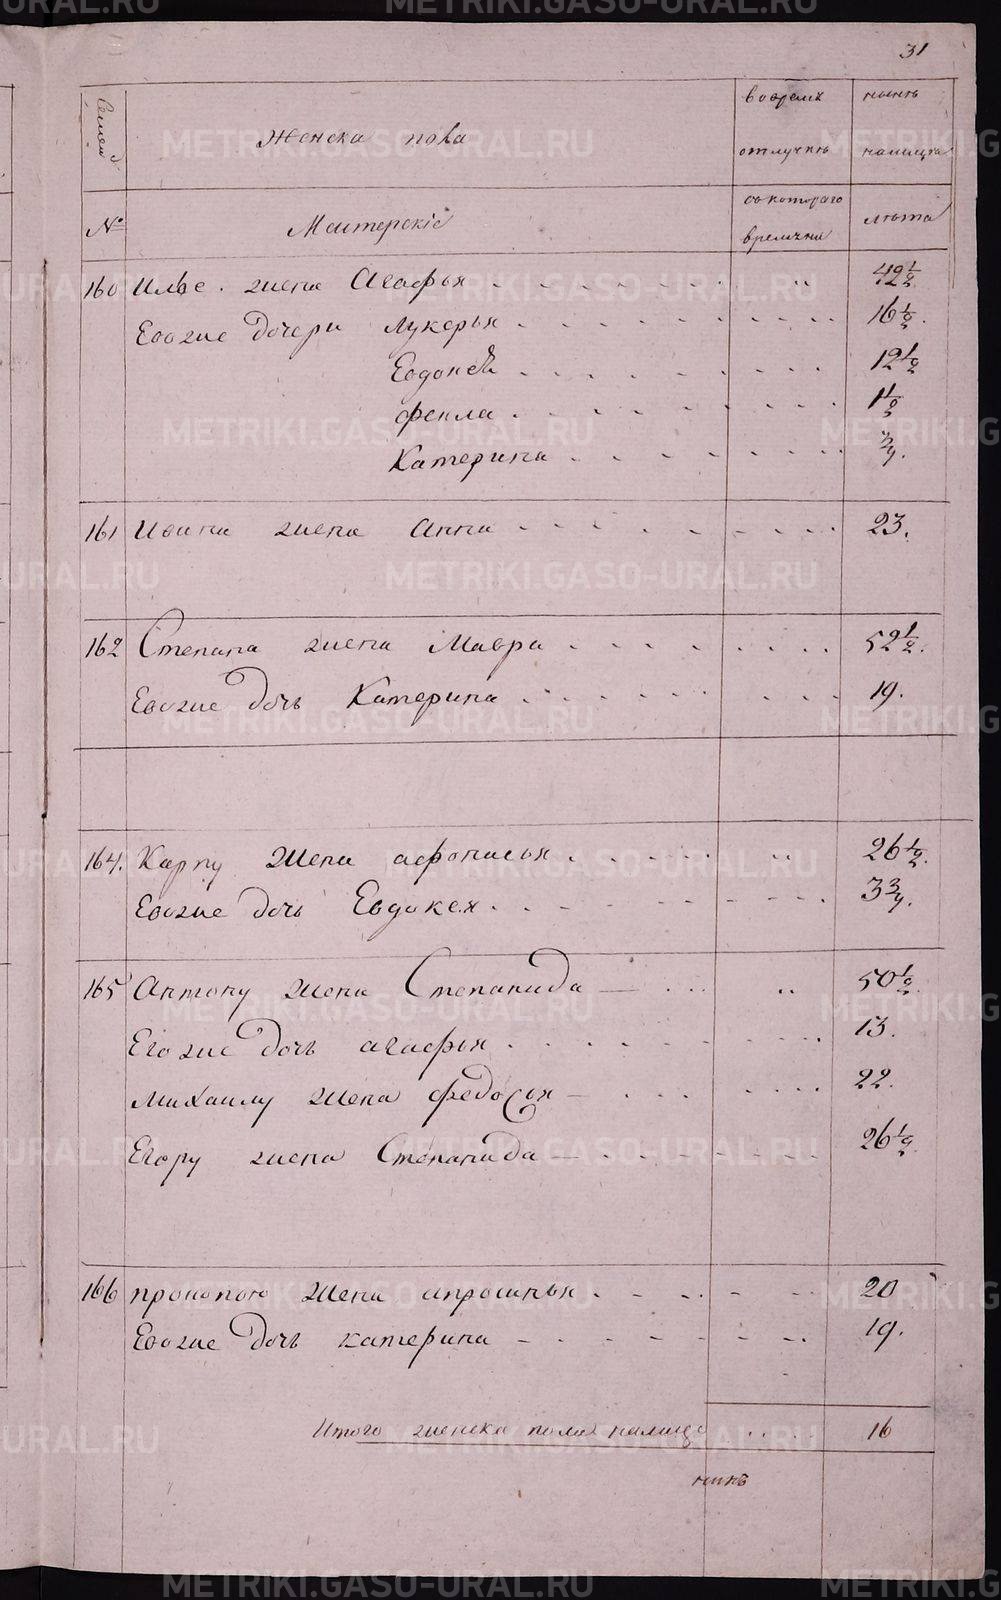 31
Семей
Женска пола
во времъ
отлучкъ
ныне
налицна
№
Мастерскiе
съ котораго
времечни
лѣта
160 Илье . жена Агафья . . . . . . . . 42 1/2
Евоже дочери Лукерья . . . . . . . . 16 1/2.
Евдокея . . . . . . . . 12 1/2
фекла . . . . . . . . 1 1/2
Катерина . . . . . . . . 3/4.
161 Ивана жена Анна . . . . . . . . 23.
162 Степана жена Мавра . . . . . . . . 52 1/2.
Евоже дочь Катерина . . . . . . . . 19.
164. Карпу жена афонасья . . . . . . . 26 1/2.
Евоже дочь Евдокея . . . . . . . . 3 3/4.
165 Антону жена Степанида — . . . . . 50 1/2
Егоже дочь агафья . . . . . . . . 13.
михаилу жена федосья — . . . . . . 22.
Егору жена Степанида — . . . . . . 26 1/2
166 прокопою жена апросинья . . . . . . 20
Евоже дочь катерина — . . . . . . 19.
Итого женска пола налицо . . . . 16
METRIKI.GASO-URAL.RU